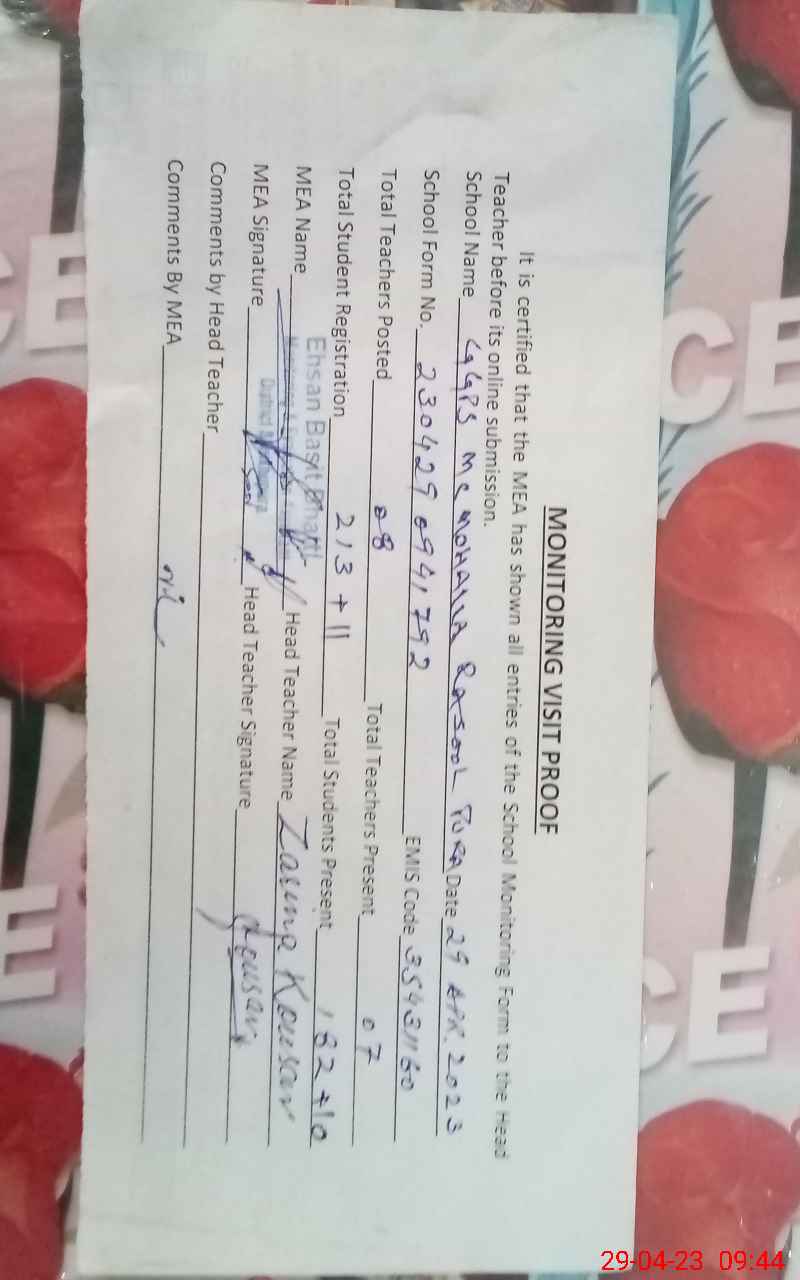 MONITORING VISIT PROOF
It is certified that the MEA has shown all entries of the School Monitoring Form to the Head
Teacher before its online submission.
School Name GGPS MC MOHALLA RASOOL PURA Date 29 APR. 2023
School Form No. 230429 0941792 EMIS Code 35431160
Total Teachers Posted 08 Total Teachers Present 07
Total Student Registration 213 + 11 Total Students Present 182 + 10
MEA Name Ehsan Basit Bhatti Head Teacher Name Zarina Kousar
MEA Signature Head Teacher Signature Kousar
Comments by Head Teacher
Comments By MEA nil
CE
CE
CE
CE
29-04-23 09:44